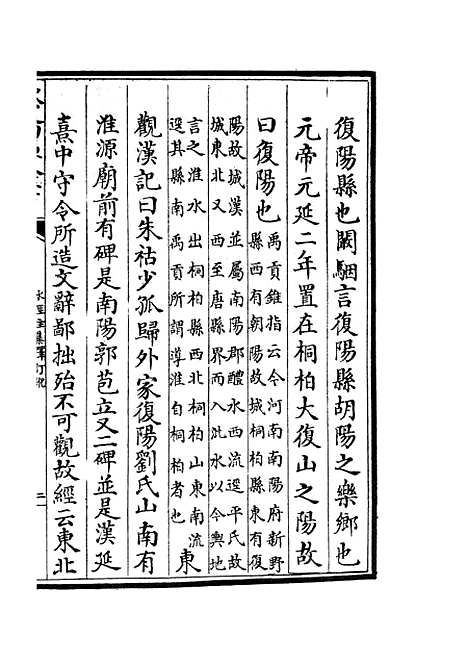 復陽縣也闞駰言復陽縣胡陽之樂鄉也
元帝元延二年置在桐柏大復山之陽故
曰復陽也
禹貢維指云今河南南陽府新野
縣西有朝陽故城桐柏縣東有復
陽故城漢並屬南陽郡醴水西流逕平氏故
城東北又西至唐縣界而入沘水以今輿地
言之淮水出桐柏縣西北桐柏山東南流
逕其縣南禹貢所謂導淮自桐柏者也
東
觀漢記曰朱祜少孤歸外家復陽劉氏山南有
淮源廟前有碑是南陽郭苞立又二碑並是漢延
熹中守令所造文辭鄙拙殆不可觀故經云東北
水經注集釋訂訛